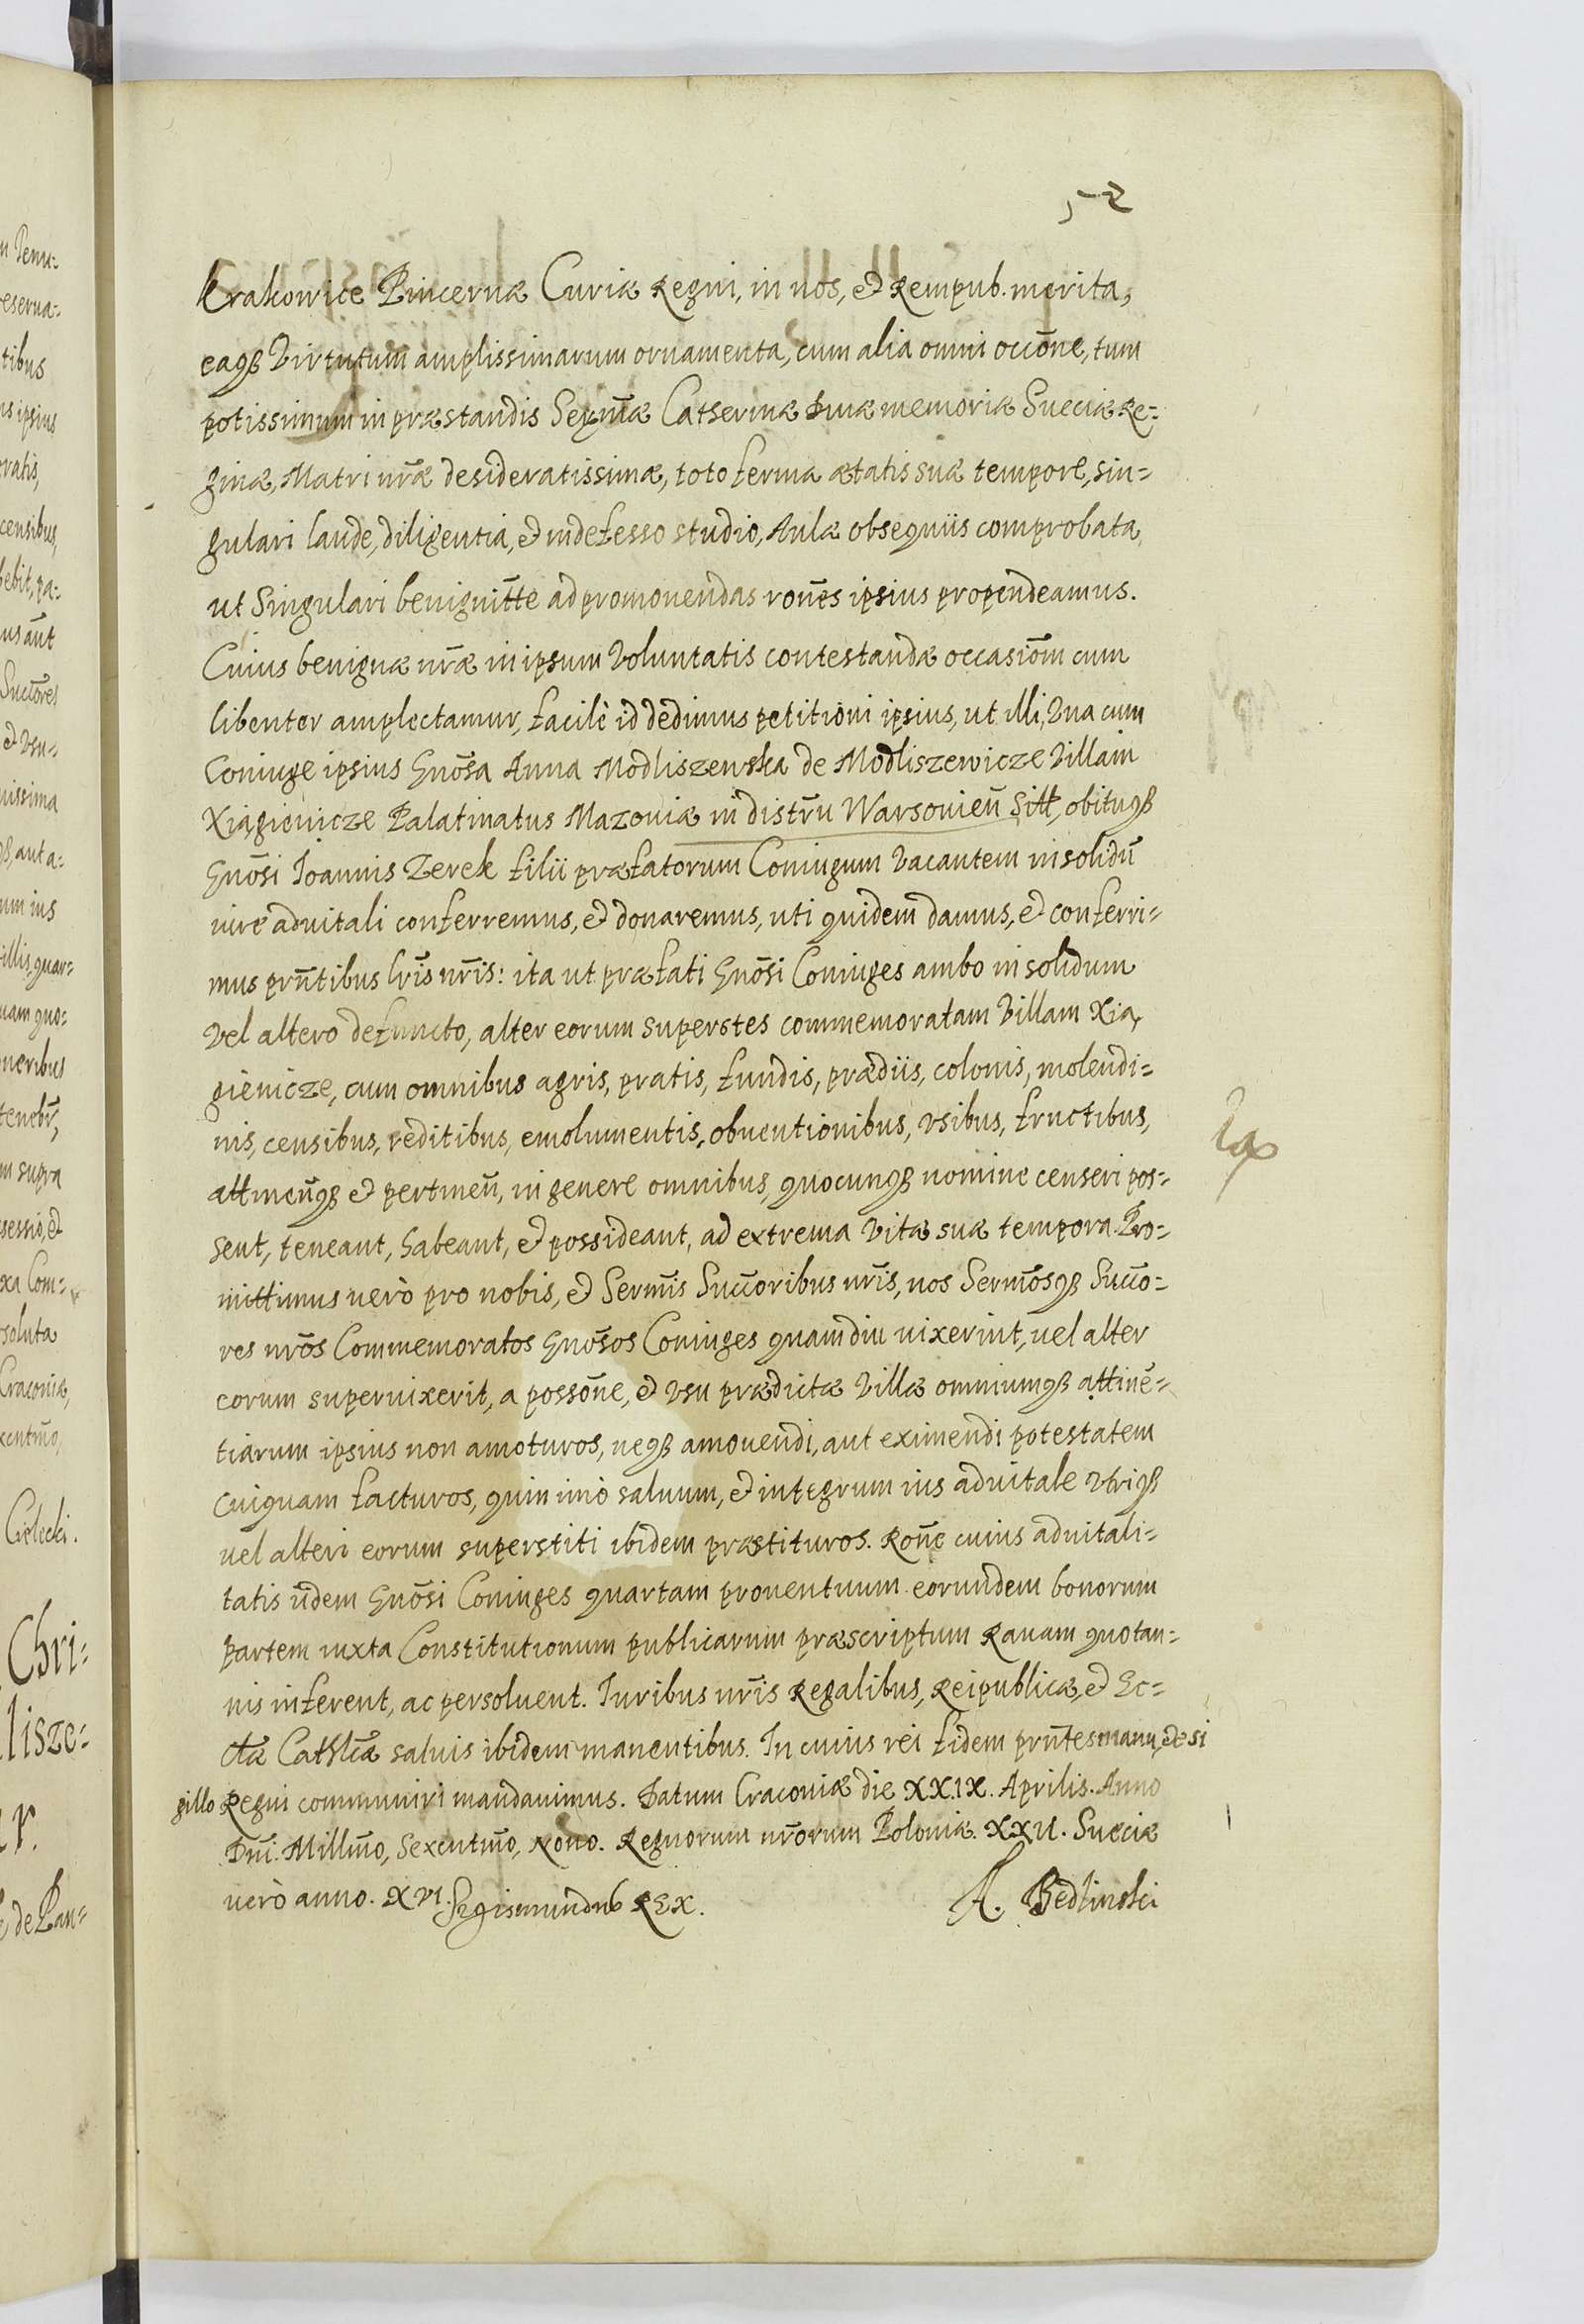 52
Krakowice Pincernæ Curiæ Regni, in nos, et Rempub. merita,
eaqȝ Virtutum amplissimarum ornamenta, cum alia omni occõne, tum
potissimum in præstandis Serm̃æ Catherinæ Diuæ memoriæ Sueciæ Re-
ginæ, Matri nr̃æ desideratissimæ, toto ferma ætatis suæ tempore, sin-
gulari laude, diligentia, et indefesso studio, Aulæ obsequiis comprobata,
ut Singulari benignit̃te ad promouendas rones̃ ipsius propendeamus.
Cuius benignæ nr̃æ in ipsum Voluntatis contestandæ occasiom̃ cum
libenter amplectamur, facilè id dedimus petitioni ipsius, ut illi, Vna cum
Coniuge ipsius Gnõsa Anna Modliszewska de Modliszewicze Villam
Xiągienicze Palatinatus Mazouiæ in distr̃u Warsouien̄ Sitt, obituqȝ
Gnõsi Ioannis Zerek filii præfatorum Coniugum Vacantem in solidū
iure aduitali conferremus, et donaremus, uti quidem damus, et conferri-
mus prñtibus lr̃is nr̃is: ita ut præfati Gnõsi Coniuges ambo in solidum
Vel altero defuncto, alter eorum superstes commemoratam Villam Xią
gienicze, cum omnibus agris, pratis, fundis, prædiis, colonis, molendi-
nis, censibus, reditibus, emolumentis, obuentionibus, vsibus, fructibus,
attinen̄qȝ et pertinen̄, in genere omnibus, quocunqȝ nomine censeri pos-
sent, teneant, habeant, et possideant, ad extrema Vitæ suæ tempora. Pro-
mittimus verò pro nobis, et Serm̃is Succ̃oribus nr̃is, nos Serm̃osqȝ Succ̃o-
res nr̃os Commemoratos Gnõsos Coniuges quamdiu uixerint, uel alter
eorum superuixerit, a possõne, et vsu prædictæ Villæ omniumqȝ attinē-
tiarum ipsius non amoturos, neqȝ amouendi, aut eximendi potestatem
cuiquam facturos, quin imò saluum, et integrum ius aduitale vtriqȝ
uel alteri eorum superstiti ibidem præstituros. Ronẽ cuius aduitali-
tatis iidem Gnõsi Coniuges quartam prouentuum eorundem bonorum
partem iuxta Constitutionum publicarum præscriptum Rauam quotan-
nis inferent, ac persoluent. Iuribus nr̃is Regalibus, Reipublicæ, et Ec-
cl̃æ Cathl̃cæ saluis ibidem manentibus. In cuius rei fidem prñtes manu, et si
gillo Regni communiri mandauimus. Datum Cracouiæ die XXIX. Aprilis. Anno
Dñi. Millm̃o, Sexcntm̃o, Nono. Regnorum nr̃orum Poloniæ. XXII. Sueciæ
verò anno. XVI. Sigismundus REX. A. Bedlinski